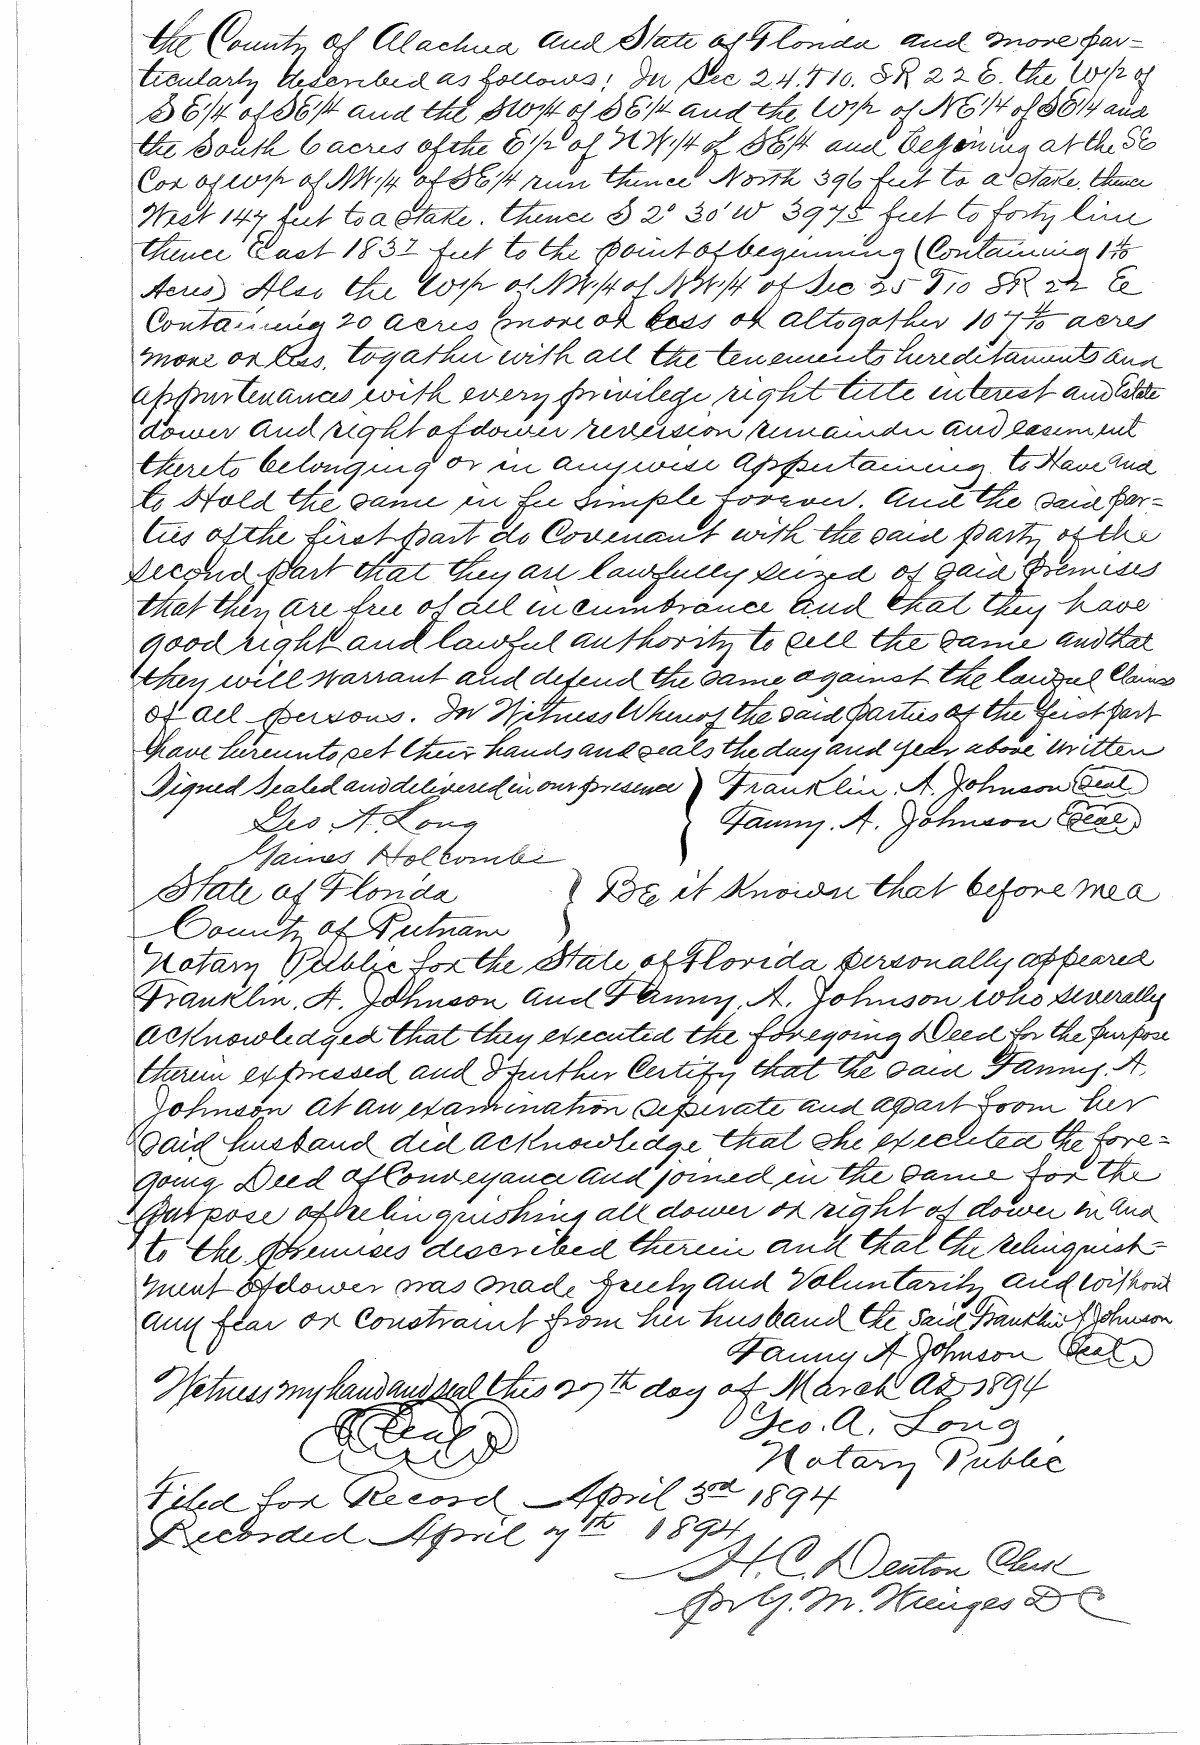 the County of Alachua and State of Florida and more par=
ticularly described as follows: In Sec 24. T10. SR 22 E. the W1/2 of
SE1/4 of SE1/4 and the SW1/4 of SE1/4 and the W1/2 of NE1/4 of SE1/4 and
the South 6 acres of the E1/2 of NW1/4 of SE1/4 and begining at the SE
Cor of W1/2 of NW1/4 of SE1/4 run thence North 396 feet to a stake. thence
West 147 feet to a stake. thence S 2° 30' W 397 5 feet to forty line
thence East 183 7 feet to the point of beginning (Containing 1 4/10
Acres) Also the W1/2 of NW1/4 of NW1/4 of Sec 25 T10 SR 22 E
Containing 20 acres more or less or altogather 107 4/10 acres
more or less. togather with all the tenements hereditaments and
appurtenances with every privilege right title interest and Estate
dower and right of dower reversion remainder and easement
thereto belonging or in anywise appertaining to Have and
to Hold the same in fee simple forever. And the said par=
ties of the first part do Covenant with the said party of the
second part that they are lawfully seized of said premises
that they are free of all incumbrance and that they have
good right and lawful authority to sell the same and that
they will warrant and defend the same against the lawful Claims
of all persons. In Witness Whereof the said parties of the first part
have hereunto set their hands and seals the day and year above written
Signed Sealed and delivered in our presence } Franklin. A. Johnson (Seal)
Geo. A. Long Fanny. A. Johnson (Seal)
Gaines Holcombe
State of Florida } Be it Known that before me a
County of Putnam
Notary Public for the State of Florida personally appeared
Franklin. A. Johnson and Fanny. A. Johnson who severally
acknowledged that they executed the foregoing Deed for the purpose
therein expressed and I further Certify that the said Fanny. A.
Johnson at an examination seperate and apart from her
said husband did acknowledge that she executed the fore=
going Deed of Conveyance and joined in the same for the
purpose of relinquishing all dower or right of dower in and
to the premises described therein and that the relinquish=
ment of dower was made freely and Voluntarily and without
any fear or Constraint from her husband the said Franklin A Johnson
Fanny A Johnson (Seal)
Witness my hand and seal this 27th day of March AD 1894
(Seal) Geo. A. Long
Notary Public
Filed for Record April 3rd 1894
Recorded April 7th 1894
H. C. Denton Clerk
pr G. M. Wienges D C